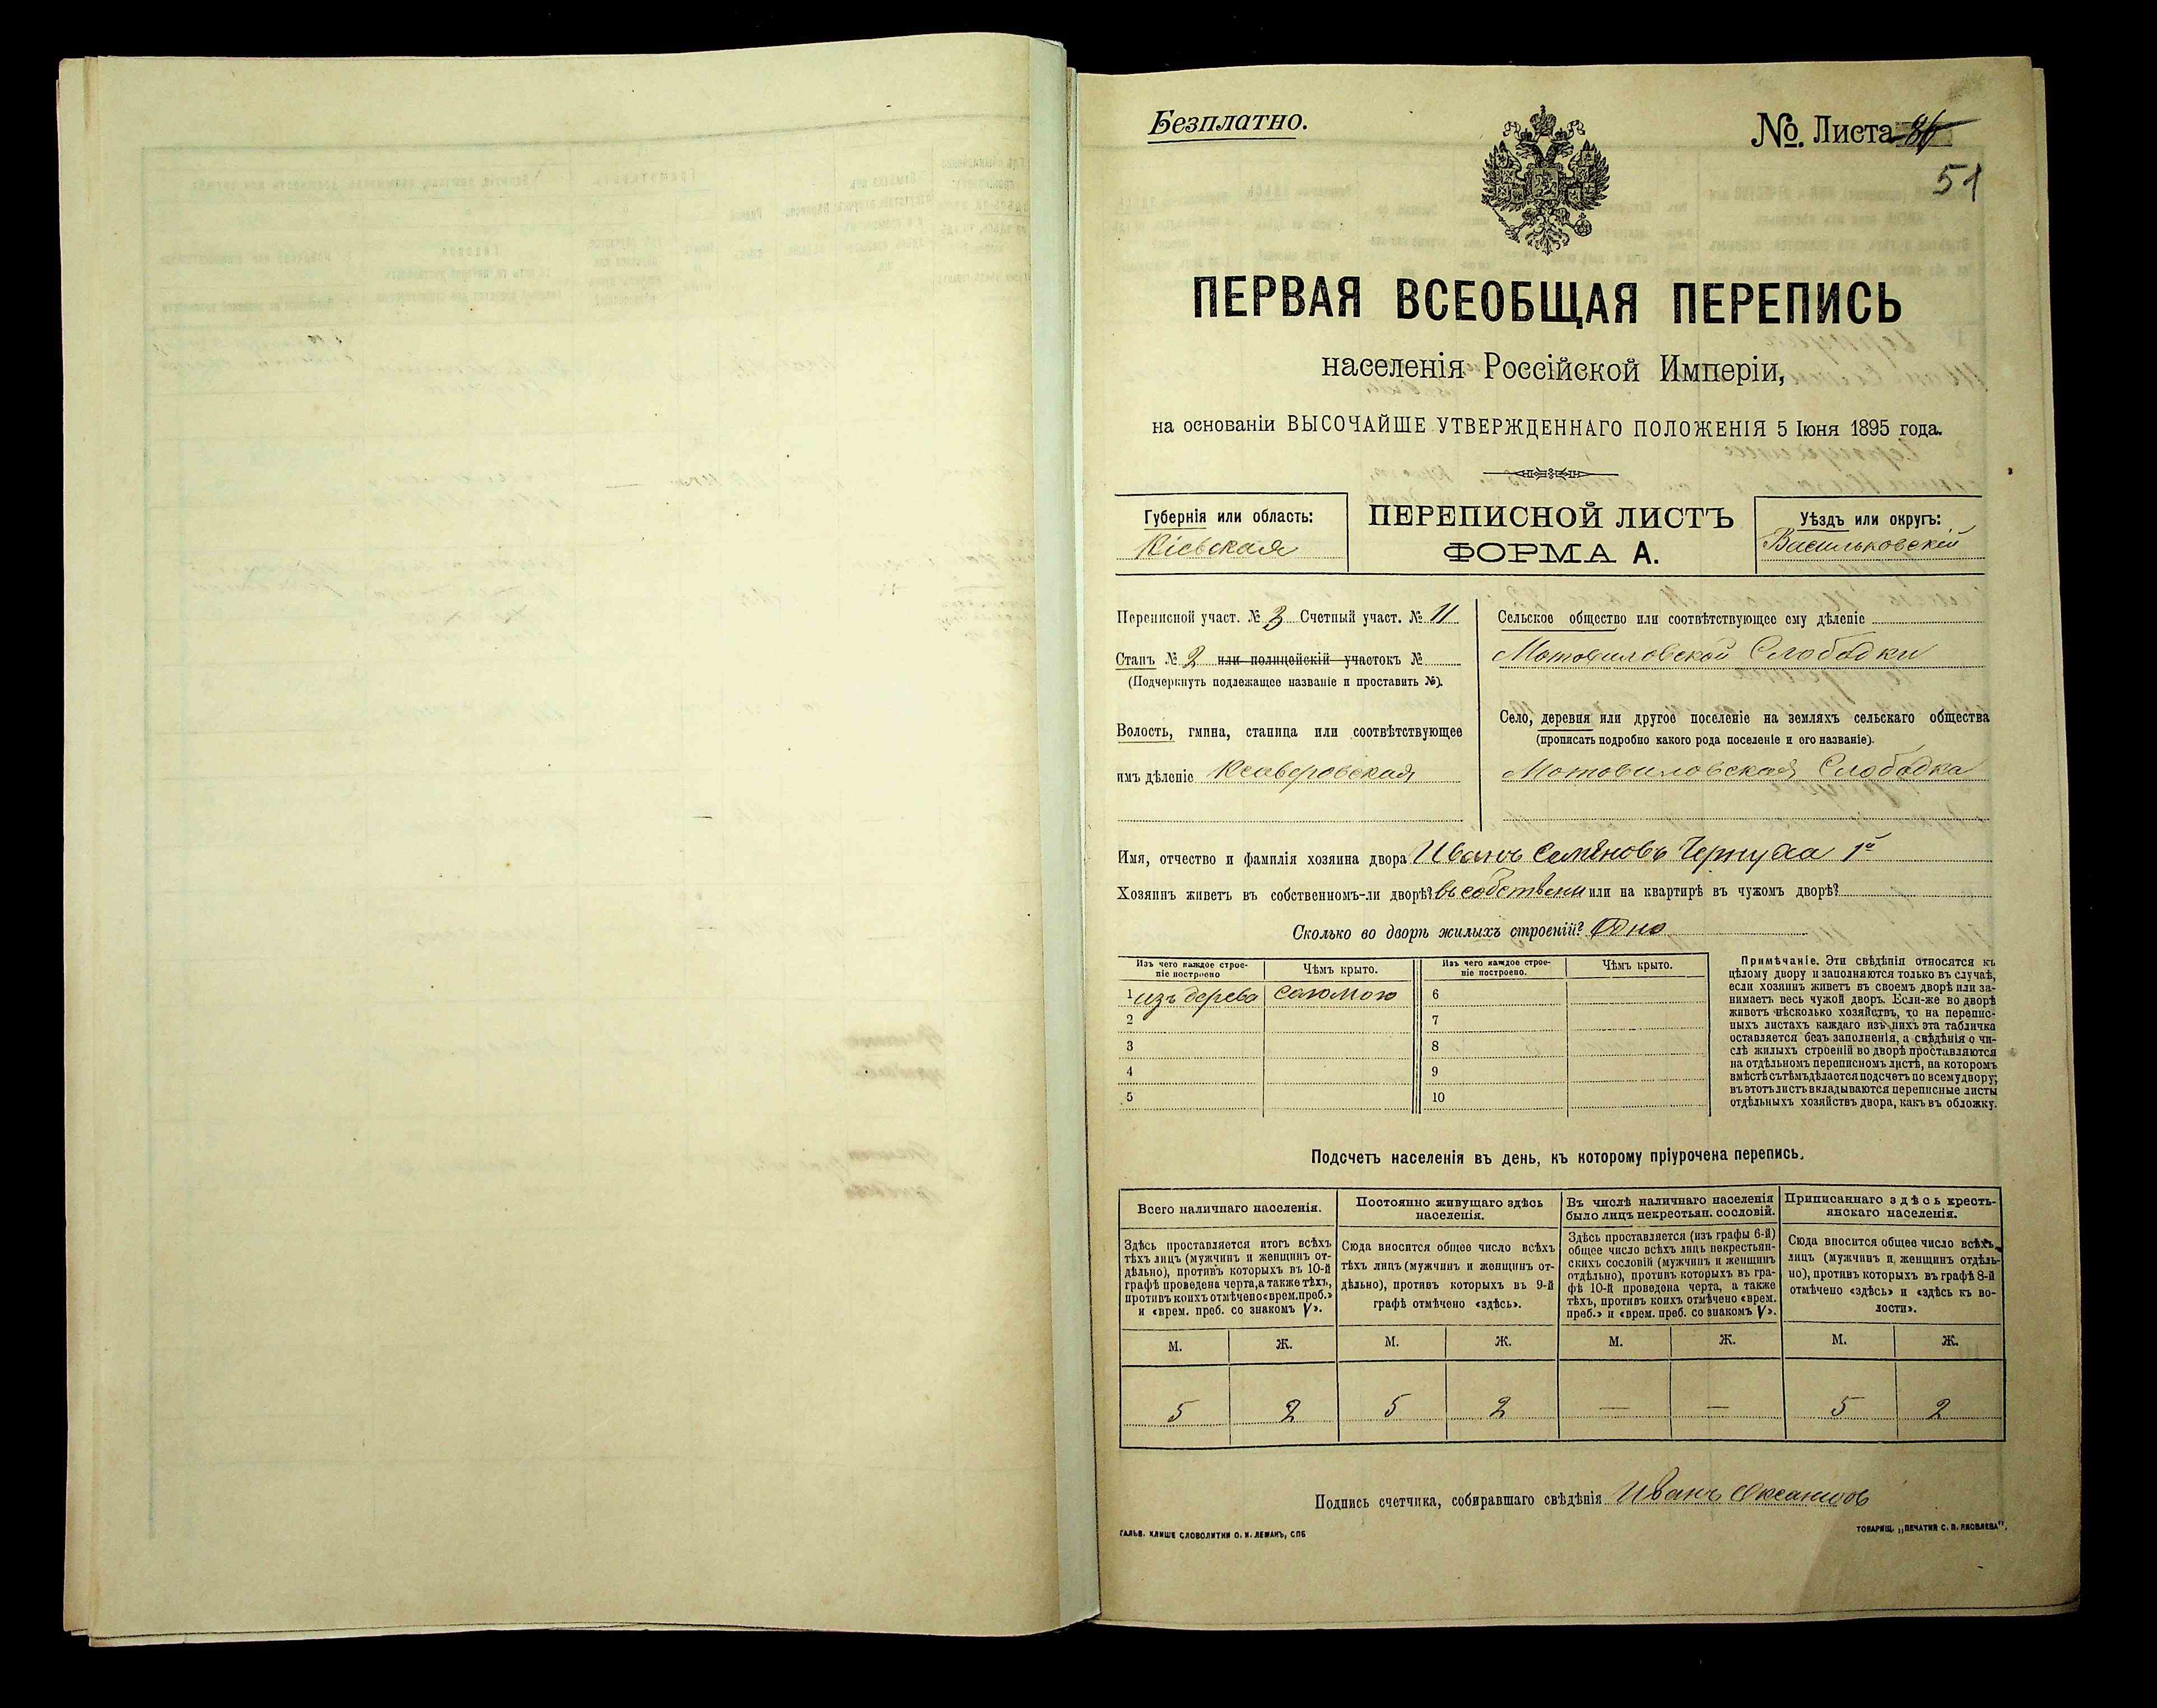 Безплатно.
№. Листа 86
51
ПЕРВАЯ ВСЕОБЩАЯ ПЕРЕПИСЬ
населенія Россійской Имперіи,
на основаніи ВЫСОЧАЙШЕ УТВЕРЖДЕННАГО ПОЛОЖЕНІЯ 5 Іюня 1895 года.
Губернія или область:
Кіевская
ПЕРЕПИСНОЙ ЛИСТЪ
ФОРМА А.
Уѣздъ или округъ:
Васильковскій
Переписной участ. № 3 Счетный участ. № 11
Станъ № 2 или полицейскій участокъ №
(Подчеркнуть подлежащее названіе и проставить №).
Волость, гмина, станица или соотвѣтствующее
имъ дѣленіе Ксаверовская
Сельское общество или соотвѣтствующее ему дѣленіе
Мотовиловской Слободки
Село, деревня или другое поселеніе на земляхъ сельскаго общества
(прописать подробно какого рода поселеніе и его названіе).
Мотовиловская Слободка
Имя, отчество и фамилія хозяина двора Иванъ Семеновъ Чернуха 1й
Хозяинъ живетъ въ собственномъ-ли дворѣ? въ собствен или на квартирѣ въ чужомъ дворѣ?
Сколько во дворѣ жилыхъ строеній? Одно
Изъ чего каждое строе-
ніе построено
Чѣмъ крыто.
Изъ чего каждое строе-
ніе построено.
Чѣмъ крыто.
1 изъ дерева соломою 6
2 7
3 8
4 9
5 10
Примѣчаніе. Эти свѣдѣнія относятся къ
цѣлому двору и заполняются только въ случаѣ,
если хозяинъ живетъ въ своемъ дворѣ или за-
нимаетъ весь чужой дворъ. Если-же во дворѣ
живетъ нѣсколько хозяйствъ, то на перепис-
ныхъ листахъ каждаго изъ нихъ эта табличка
оставляется безъ заполненія, а свѣдѣнія о чи-
слѣ жилыхъ строеній во дворѣ проставляются
на отдѣльномъ переписномъ листѣ, на которомъ
вмѣстѣ съ тѣмъ дѣлается подсчетъ по всему двору;
въ этотъ листъ вкладываются переписные листы
отдѣльныхъ хозяйствъ двора, какъ въ обложку.
Подсчетъ населенія въ день, къ которому пріурочена перепись.
Всего наличнаго населенія.
Здѣсь проставляется итогъ всѣхъ
тѣхъ лицъ (мужчинъ и женщинъ от-
дѣльно), противъ которыхъ въ 10-й
графѣ проведена черта, а также тѣхъ,
противъ коихъ отмѣчено «врем. преб.»
и «врем. преб. со знакомъ V».
Постоянно живущаго здѣсь
населенія.
Сюда вносится общее число всѣхъ
тѣхъ лицъ (мужчинъ и женщинъ от-
дѣльно), противъ которыхъ въ 9-й
графѣ отмѣчено «здѣсь».
Въ числѣ наличнаго населенія
было лицъ некрестьян. сословій.
Здѣсь проставляется (изъ графы 6-й)
общее число всѣхъ лицъ некрестьян-
скихъ сословій (мужчинъ и женщинъ
отдѣльно), противъ которыхъ въ гра-
фѣ 10-й проведена черта, а также
тѣхъ, противъ коихъ отмѣчено «врем.
преб.» и «врем. преб. со знакомъ V».
Приписаннаго здѣсь кресть-
янскаго населенія.
Сюда вносится общее число всѣхъ
лицъ (мужчинъ и женщинъ отдѣль-
но), противъ которыхъ въ графѣ 8-й
отмѣчено «здѣсь» и «здѣсь къ во-
лости».
М. Ж. М. Ж. М. Ж. М. Ж.
5 2 5 2 — — 5 2
Подпись счетчика, собиравшаго свѣдѣнія Иванъ
ГАЛЬВ. КЛИШЕ СЛОВОЛИТНИ О. И. ЛЕМАНЪ, СПБ
ТОВАРИЩ. „ПЕЧАТНЯ С. П. ЯКОВЛЕВА".